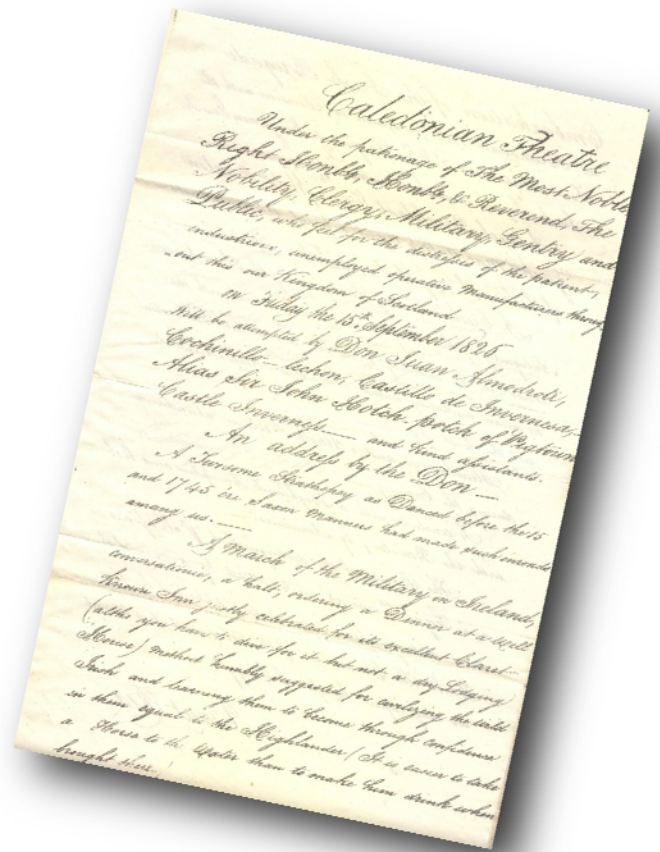 Caledonian Theatre
Under the patronage of The Most Noble,
Right Honble, Honble, & Reverend, The
Nobility, Clergy, Military, Gentry and
Public, who feel for the distresses of the patient,
industrious, unemployed operative manufacturers throug
out this our Kingdom of Scotland
on Friday the 15th September 1826
Will be attempted by Don Juan Almodrote,
Cochinillo-lechon, Castillo de Invernesa,
Alias Sir John Hotch-potch of Pigtown
Castle Inverness — and kind assistants.
An address by the Don —
A Twosome Strathspey as Danced before the 15
and 1745 ere Saxon manners had made such inroads
among us. —
A March of the Military in Ireland,
conversations, a halt, ordering a Dinner at a well
known Inn justly celebrated for its excellent Claret
(altho you have to dive for it but not a dry Lodging
House) method humbly suggested for civilizing the wild
Irish and learning them to become through confidence
in them equal to the Highlander (It is easier to take
a Horse to the Water than to make him drink when
brought there